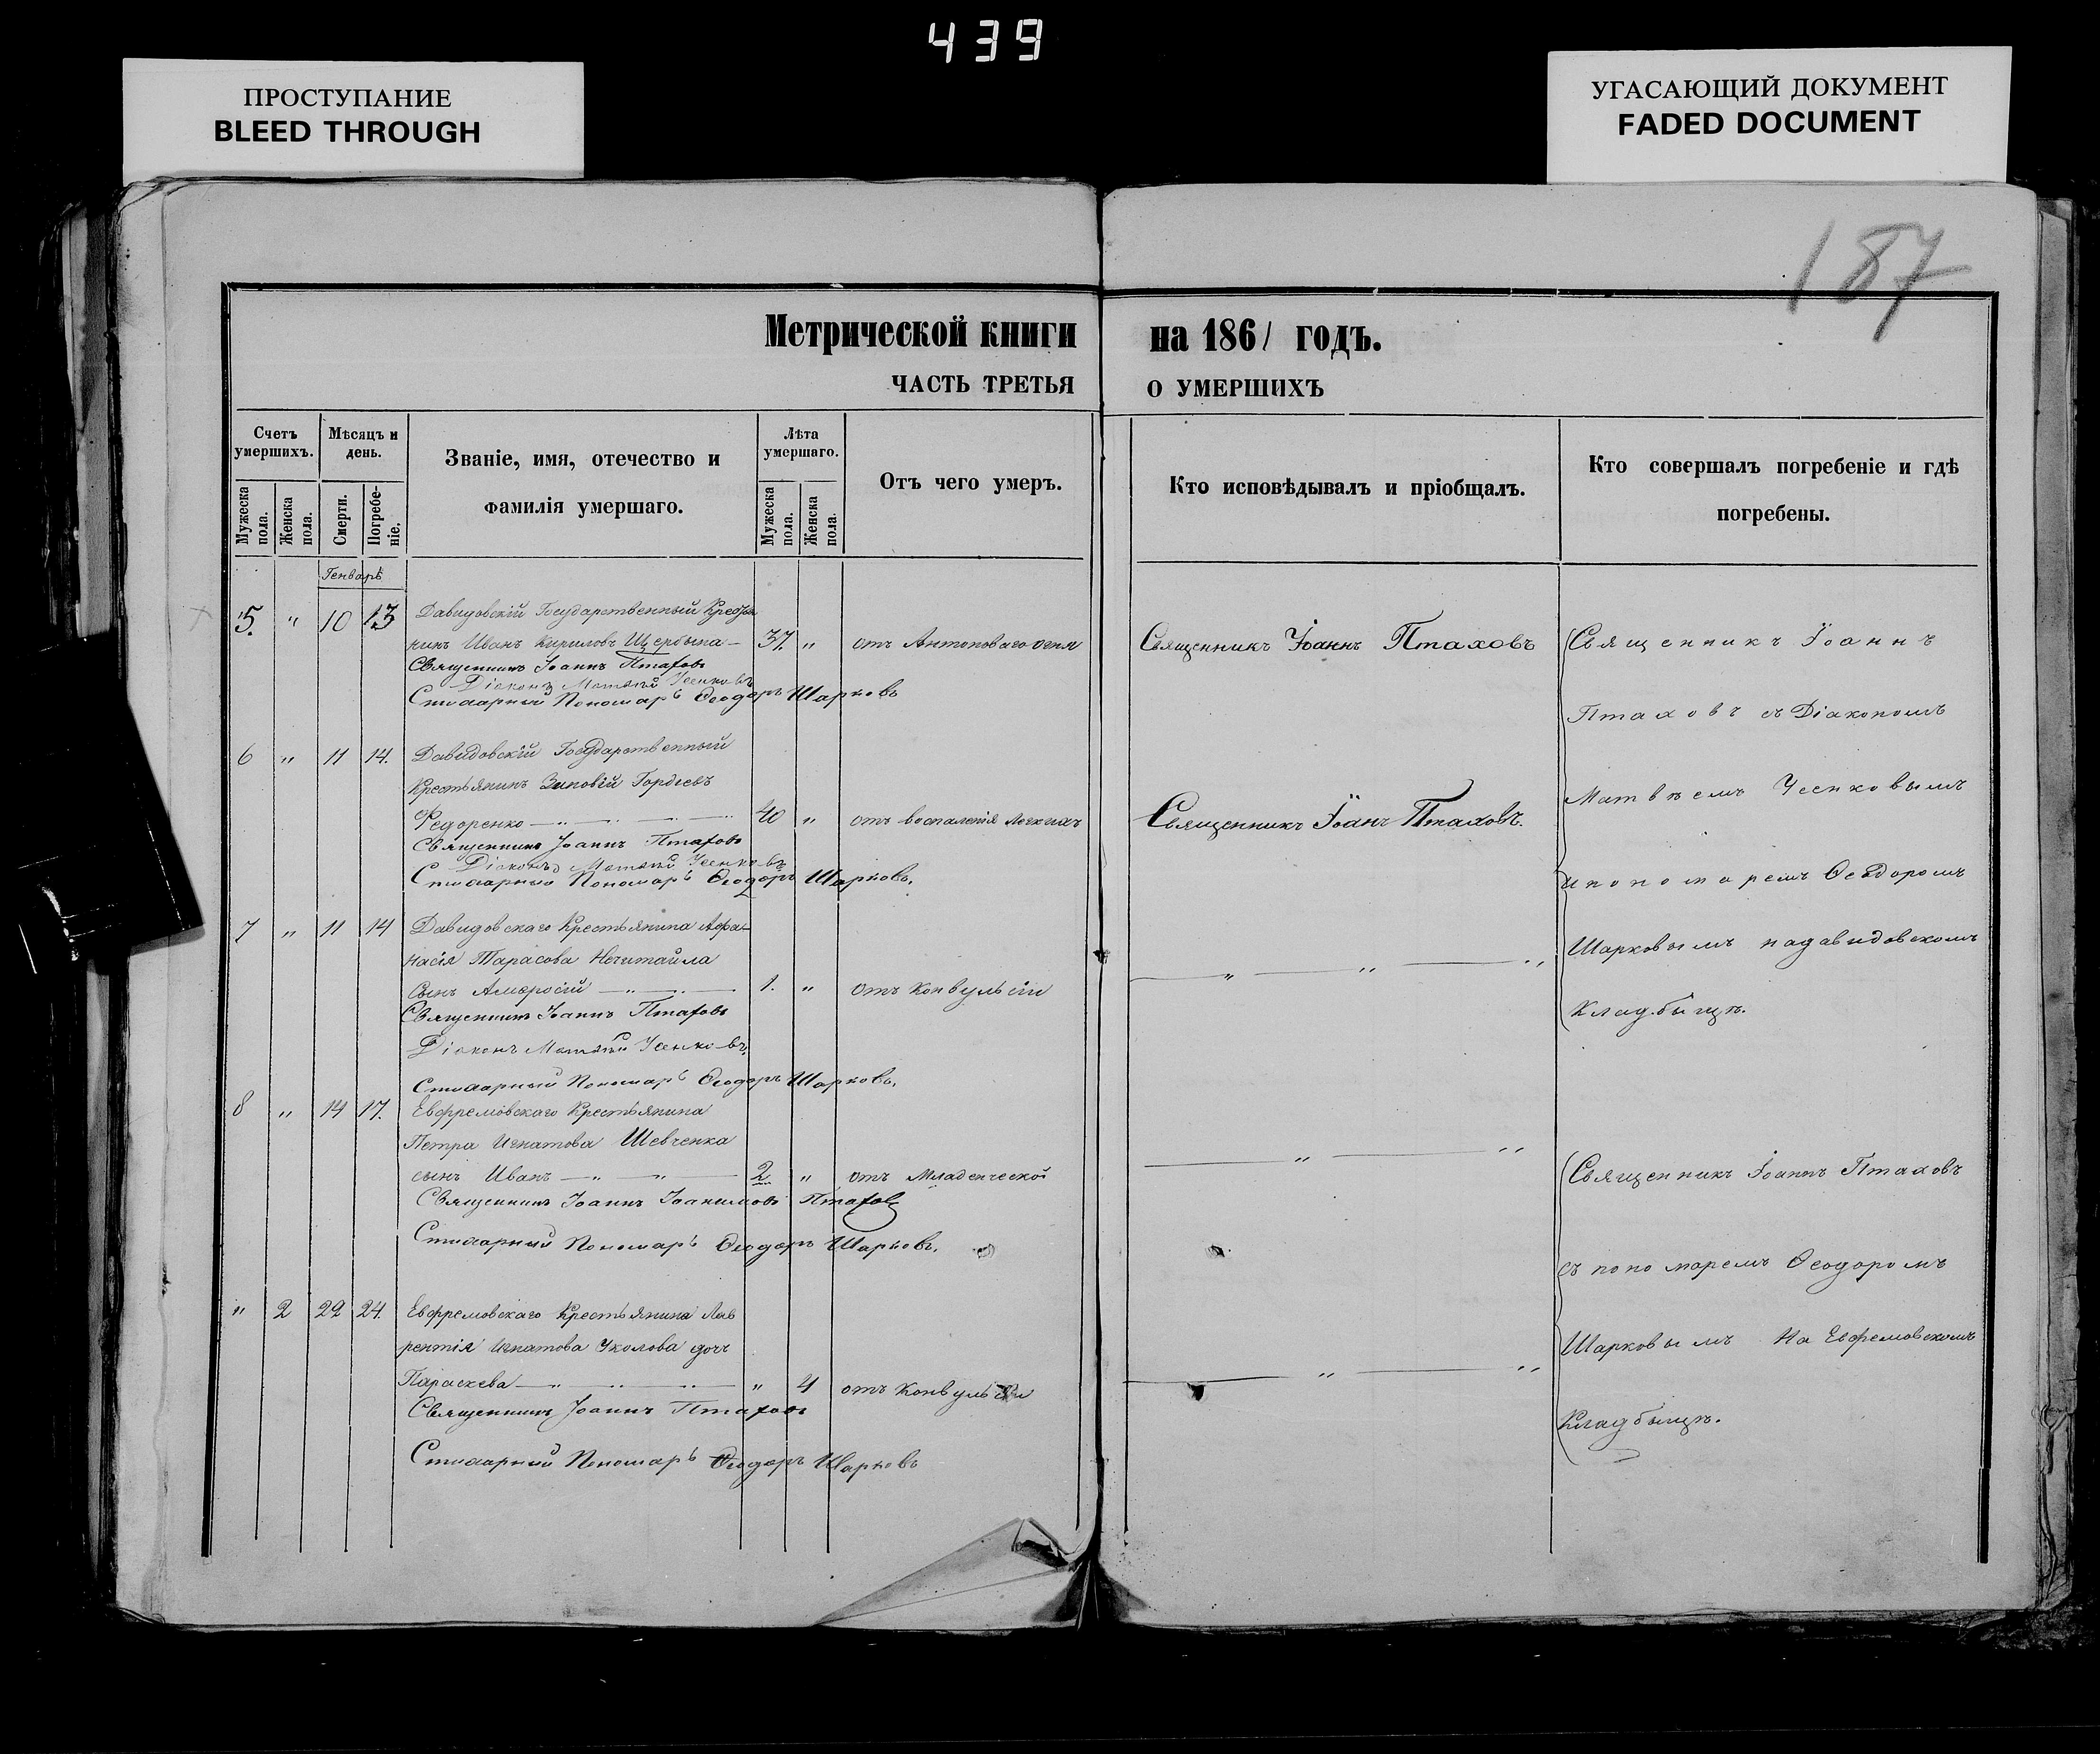 439
ПРОСТУПАНИЕ
BLEED THROUGH
УГАСАЮЩИЙ ДОКУМЕНТ
FADED DOCUMENT
187
Метрической книги на 1861 годъ.
ЧАСТЬ ТРЕТЬЯ О УМЕРШИХЪ
Счетъ умершихъ.
Мужеска пола.
Женска пола.
Мѣсяцъ и день.
Смерти.
Погребеніе.
Званіе, имя, отечество и
фамилія умершаго.
Лѣта умершаго.
Мужеска пола.
Женска пола.
Отъ чего умеръ.
Кто исповѣдывалъ и пріобщалъ.
Кто совершалъ погребеніе и гдѣ
погребены.
Генварь
5. " 10 13 Давидовскій Государственный Крестья
нинъ Иванъ Кириловъ Щербина — 37. " отъ Антоноваго огня
Священникъ Іоаннъ Птаховъ
Священникъ Іоаннъ Птаховъ
Діаконъ Матѳій Усенковъ
Стихарный Пономарь Ѳеодоръ Шарковъ
6 " 11 14. Давидовскій Государственный
Крестьянинъ Зиновій Гордѣевъ
Федоренко — " — " — 40 " отъ воспаленія легкихъ
Священникъ Іоаннъ Птаховъ.
Священникъ Іоаннъ Птаховъ
Діаконъ Матѳій Усенковъ
Стихарный Пономарь Ѳеодоръ Шарковъ.
7 " 11 14 Давидовскаго Крестьянина Афа-
насія Тарасова Нечитайла
сынъ Амвросій — " — 1. " отъ Конвульсіи
— " — " — "
Священникъ Іоаннъ Птаховъ
Діаконъ Матѳій Усенковъ
Стихарный Пономарь Ѳеодоръ Шарковъ.
Священникъ Іоаннъ
Птаховъ съ Діакономъ
Матвѣемъ Усенковымъ
и пономаремъ Ѳеодоромъ
Шарковымъ на давидовскомъ
Кладбыщѣ.
8 " 14 17. Евфремовскаго Крестьянина
Петра Игнатова Шевченка
сынъ Иванъ — " — " — 2 " отъ Младенческой
— " — "
Священникъ Іоаннъ Іоанимовъ Птаховъ
Стихарный Пономарь Ѳеодоръ Шарковъ.
" 2 22 24. Евфремовскаго Крестьянина Лав
рентія Игнатова Уколова дочь
Параскева — " — " — " 4 отъ Конвульсіи
— " — "
Священникъ Іоаннъ Птаховъ
Стихарный Пономарь Ѳеодоръ Шарковъ
Священникъ Іоаннъ Птаховъ
съ пономаремъ Ѳеодоромъ
Шарковымъ На Евфремовскомъ
Кладбыщѣ.